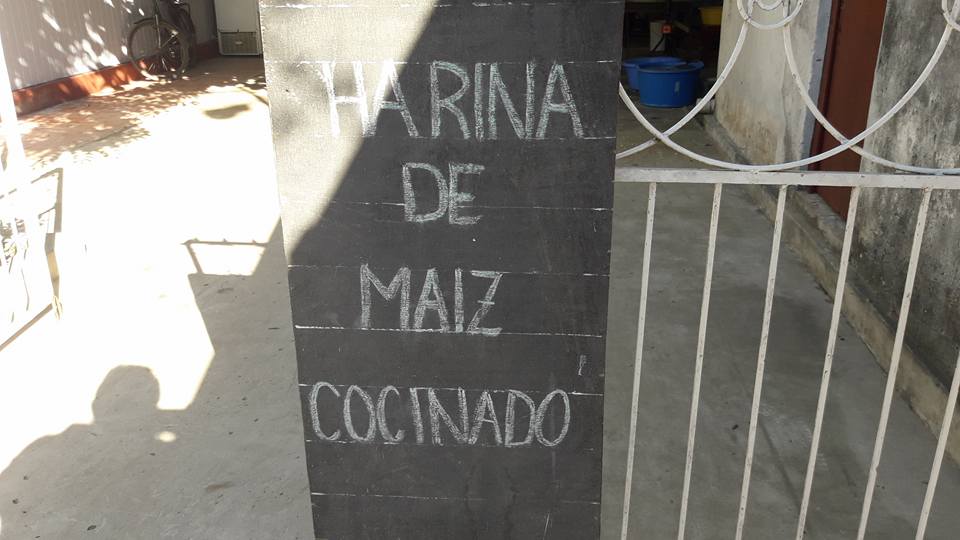 HARINA
DE
MAIZ
COCINADO